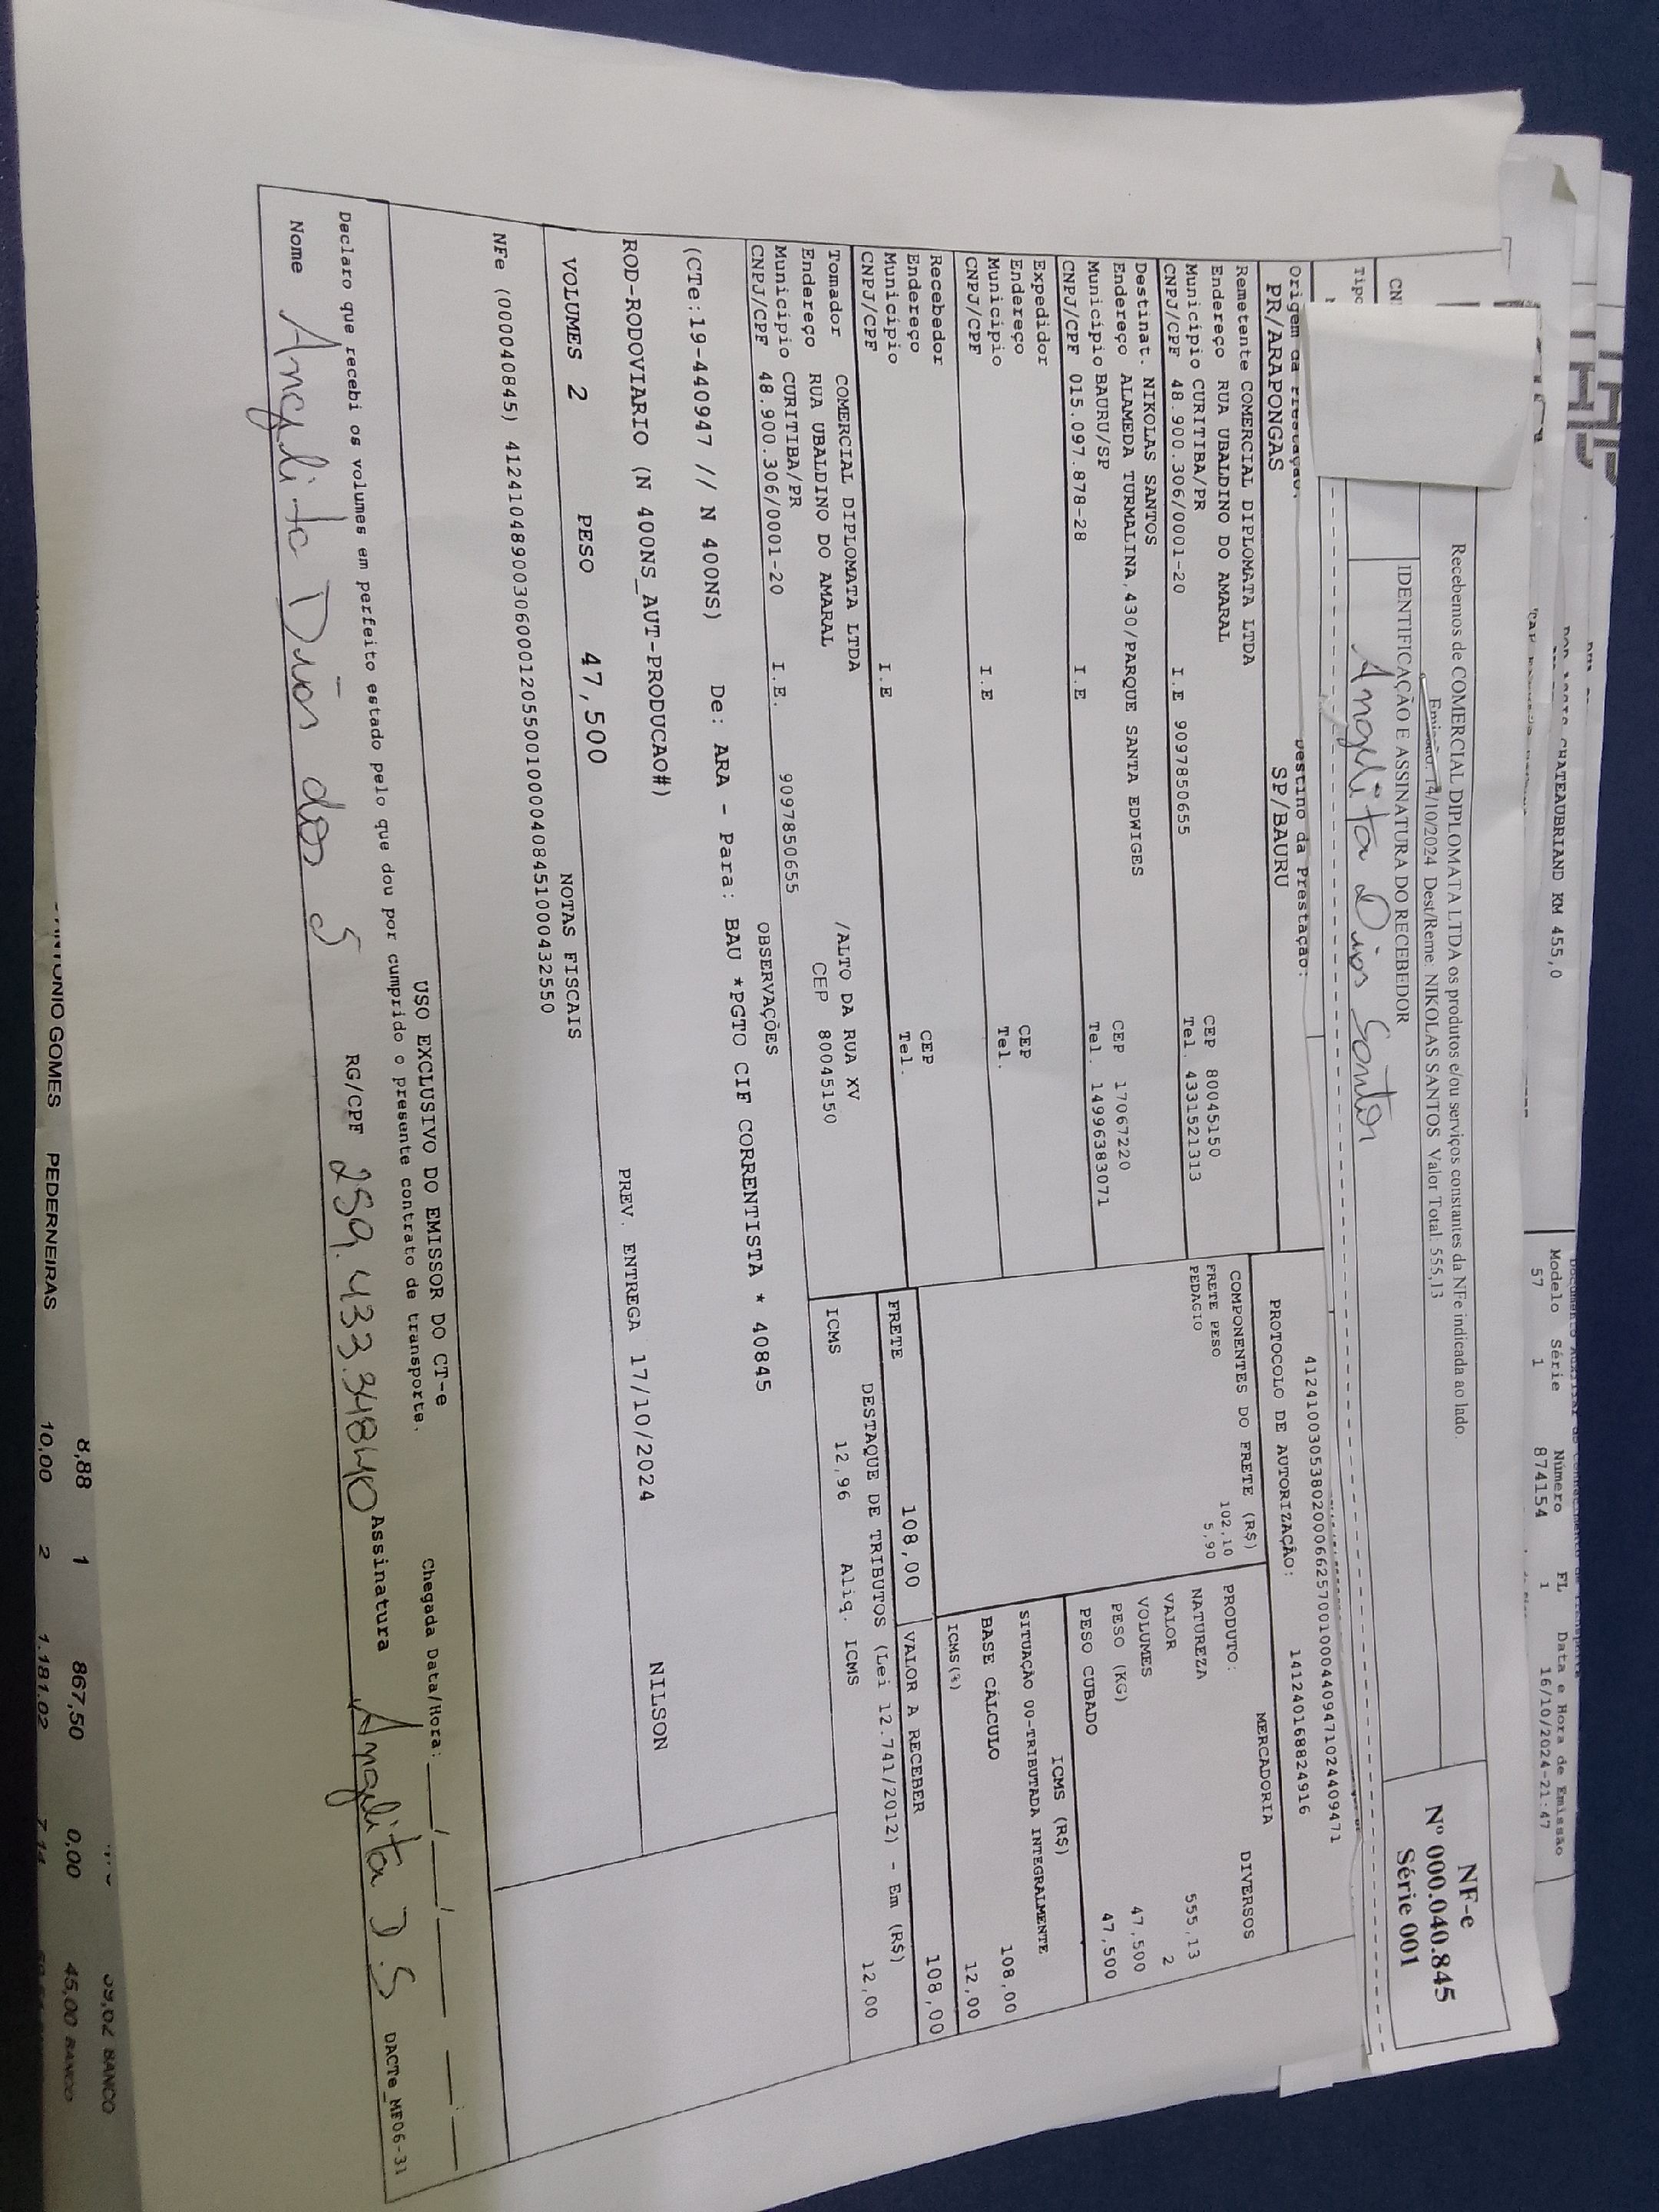 CHATEAUBRIAND KM 455,0
Modelo Série Número FL Data e Hora de Emissão
57 1 874154 1 16/10/2024-21:47
Recebemos de COMERCIAL DIPLOMATA LTDA os produtos e/ou serviços constantes da NFe indicada ao lado.
Emissão: 14/10/2024 Dest/Reme: NIKOLAS SANTOS Valor Total: 555,13
IDENTIFICAÇÃO E ASSINATURA DO RECEBEDOR
Angelita Dias Santos
NF-e
Nº 000.040.845
Série 001
CN
Tipo
41241003053802000662570010004409471024409471
Origem da Prestação: Destino da Prestação:
PR/ARAPONGAS SP/BAURU
PROTOCOLO DE AUTORIZAÇÃO: 141240168824916
Remetente COMERCIAL DIPLOMATA LTDA
Endereço RUA UBALDINO DO AMARAL CEP 80045150
Município CURITIBA/PR Tel. 4331521313
CNPJ/CPF 48.900.306/0001-20 I.E 9097850655
Destinat. NIKOLAS SANTOS
Endereço ALAMEDA TURMALINA,430/PARQUE SANTA EDWIGES CEP 17067220
Município BAURU/SP Tel. 14996383071
CNPJ/CPF 015.097.878-28 I.E
Expedidor
Endereço CEP
Município Tel.
CNPJ/CPF I.E
Recebedor
Endereço CEP
Município Tel.
CNPJ/CPF I.E
Tomador COMERCIAL DIPLOMATA LTDA
Endereço RUA UBALDINO DO AMARAL /ALTO DA RUA XV
Município CURITIBA/PR CEP 80045150
CNPJ/CPF 48.900.306/0001-20 I.E. 9097850655
COMPONENTES DO FRETE (R$)
FRETE PESO 102,10
PEDAGIO 5,90
MERCADORIA
PRODUTO: DIVERSOS
NATUREZA
VALOR 555,13
VOLUMES 2
PESO (KG) 47,500
PESO CUBADO 47,500
ICMS (R$)
SITUAÇÃO 00-TRIBUTADA INTEGRALMENTE
BASE CÁLCULO 108,00
ICMS(%) 12,00
FRETE 108,00 VALOR A RECEBER 108,00
DESTAQUE DE TRIBUTOS (Lei 12.741/2012) - Em (R$)
ICMS 12,96 Aliq. ICMS 12,00
OBSERVAÇÕES
(CTe:19-440947 // N 400NS) De: ARA - Para: BAU *PGTO CIF CORRENTISTA * 40845
ROD-RODOVIARIO (N 400NS_AUT-PRODUCAO#)
PREV. ENTREGA 17/10/2024 NILSON
VOLUMES 2 PESO 47,500
NOTAS FISCAIS
NFe (000040845) 41241048900306000120550010000408451000432550
USO EXCLUSIVO DO EMISSOR DO CT-e
Declaro que recebi os volumes em perfeito estado pelo que dou por cumprido o presente contrato de transporte. Chegada Data/Hora: ___/___/______ ___:___
Nome Angelita Dias dos S RG/CPF 259.433.34840 Assinatura Angelita D.S
DACTe_MF06-31
8,88 1 867,50 0,00 45,00 BANCO
ANTONIO GOMES PEDERNEIRAS 10,00 2 1.181,02 7,14